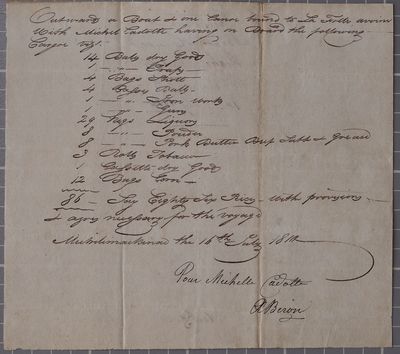 Outwards a Boat & one Canoe bound to La Folle avoin
With Michel Cadotte having on Board the following
Cargoe viz!
14 Bals dry Good
1 - " -
4 Bags Shott
4 Casses Ball -
1 - " - Iron works
1 - " - Guns
29 Kags Liquors
8 - " - Powder
8 - " - Pork Butter Beef Salt & Grease
3 Rolls Tobacco
1 Cassette dry Good
12 Bags Corn -
86 - Say Eighty Six Pieces - With provisions
& agrez necessary for the voyage
Michilimackinac the 16th July 18
Pour Michelle Cadotte